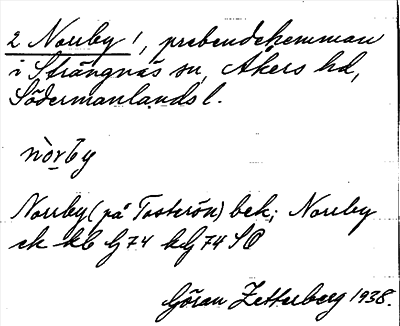 2 Norrby 1, prebendehemman
i Strängnäs sn, Åkers hd,
Södermanlands l.
nòrby
Norrby (på Tosterön) bek; Norrby
ek kb G74 kG74 SO
Göran Zetterberg 1938.